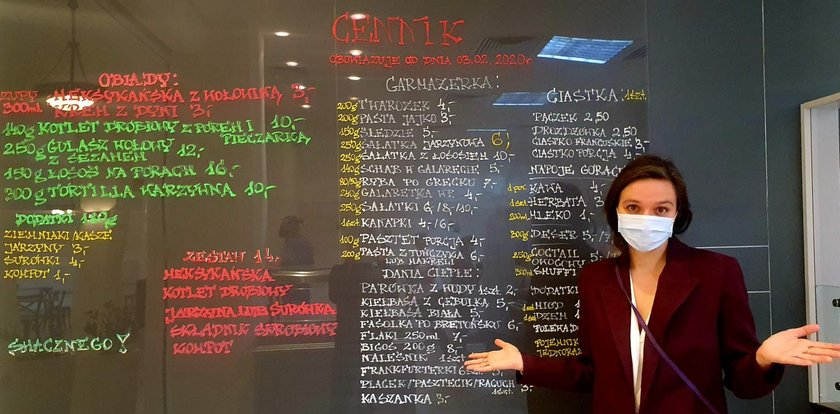 CENNIK
OBOWIĄZUJE OD DNIA 03.02.2020r
OBIADY:
ZUPY MEKSYKAŃSKA Z WOŁOWINĄ 3,-
300ml KREM Z DYNI 3,-
140g KOTLET DROBIOWY Z POREM I PIECZARKĄ 10,-
250g GULASZ WOŁOWY Z SEZAMEM 12,-
150g ŁOSOŚ NA PORACH 16,-
300g TORTILLA WARZYWNA 10,-
DODATKI
ZIEMNIAKI/KASZE
JARZYNY 3,-
SURÓWKI 4,-
KOMPOT 1,-
SMACZNEGO!
ZESTAW 14,-
MEKSYKAŃSKA
KOTLET DROBIOWY
JARZYNA LUB SURÓWKA
SKŁADNIK SKROBIOWY
KOMPOT
GARMAŻERKA:
200g TWAROŻEK 4,-
200g PASTA JAJKO 3,-
150g ŚLEDZIE 5,-
250g SAŁATKA JARZYNOWA 6,-
250g SAŁATKA Z ŁOSOSIEM 10,-
140g SCHAB W GALARECIE 5,-
RYBA PO GRECKU 7,-
240g GALARETKA WP. 4,-
250g SAŁATKI 6,-/8,-/10,-
1szt KANAPKI 4,-/6,-
100g PASZTET PORCJA 4,-
200g PASTA Z TUŃCZYKA 6,-
LUB MAKRELI
DANIA CIEPŁE:
PARÓWKA Z WODY 1szt. 2,-
KIEŁBASA Z CEBULKĄ 5,-
KIEŁBASA BIAŁA 5,-
FASOLKA PO BRETOŃSKU 6,-
FLAKI 250ml 7,-
BIGOS 200g 8,-
NALEŚNIK 1szt
FRANKFURTERKI 6szt
PLACEK/PASZTECIK/RACUCH 1szt
KASZANKA 3,-
CIASTKA: 1szt.
PĄCZEK 2,50
DROŻDŻÓWKA 2,50
CIASTKO FRANCUSKIE 3,-
CIASTKO PORCJA 4,-
NAPOJE GORĄC
1por. KAWA 4,-
1szt. HERBATA 3,-
200ml MLEKO 1,-
300g DESER 5,-/7,-
250g COCTAIL
OWOCOWY
300ml SMUFFI
DODATKI
1szt MIÓD 1
1szt DŻEM 1
POLEWA DO
POJEMNIK
JEDNORAZ